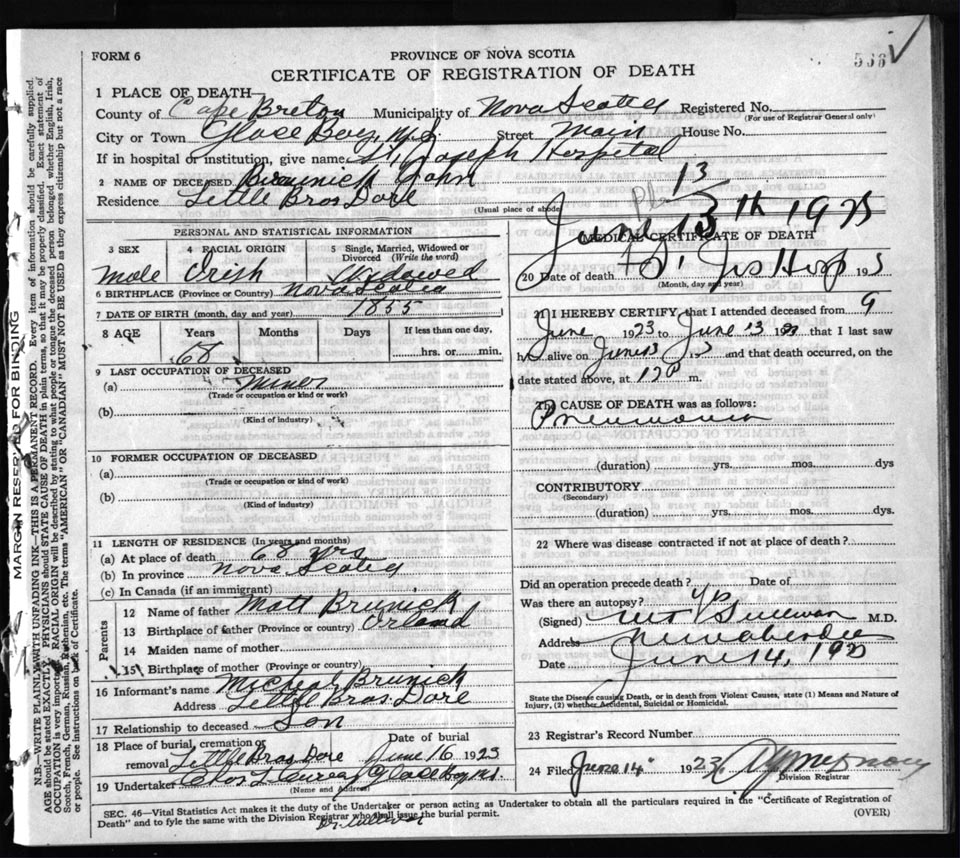 FORM 6
PROVINCE OF NOVA SCOTIA
CERTIFICATE OF REGISTRATION OF DEATH
1 PLACE OF DEATH—
County of Cape Breton Municipality of Nova Scotia Registered No.
(For use of Registrar General only)
City or Town Glace Bay, N.S. Street Main House No.
If in hospital or institution, give name St. Joseph Hospital
2 NAME OF DECEASED John
Residence Little Bras Dore
(Usual place of abode)
13
June 13th 1923
PERSONAL AND STATISTICAL INFORMATION
3 SEX
Male
4 RACIAL ORIGIN
Irish
5 Single, Married, Widowed or Divorced (Write the word)
Widowed
6 BIRTHPLACE (Province or Country) Nova Scotia
7 DATE OF BIRTH (month, day and year) 1855
8 AGE Years Months Days If less than one day,
68 hrs. or min.
9 LAST OCCUPATION OF DECEASED
(a) Miner
(Trade or occupation or kind of work)
(b)
(Kind of industry)
10 FORMER OCCUPATION OF DECEASED
(a)
(Trade or occupation or kind of work)
(b)
(Kind of industry)
11 LENGTH OF RESIDENCE (In years and months)
(a) At place of death 68 yrs
(b) In province Nova Scotia
(c) In Canada (if an immigrant)
Parents
12 Name of father Matt Brunick
13 Birthplace of father (Province or country) Orland
14 Maiden name of mother
15 Birthplace of mother (Province or country)
16 Informant's name Micheal Brunick
Address Little Bras Dore
17 Relationship to deceased Son
18 Place of burial, cremation or removal Little Bras Dore
Date of burial June 16 1923
19 Undertaker Glace Bay N.S.
(Name and Address)
MEDICAL CERTIFICATE OF DEATH
20 Date of death St. Jos Hosp 193
(Month, day and year)
21 I HEREBY CERTIFY, that I attended deceased from 9
June 1923 to June 13 that I last saw
h alive on June 13 and that death occurred, on the
date stated above, at 12 P m.
The CAUSE OF DEATH was as follows:
Pneumonia
(duration) yrs. mos. dys
CONTRIBUTORY
(Secondary)
(duration) yrs. mos. dys.
22 Where was disease contracted if not at place of death?
Did an operation precede death? Date of
Was there an autopsy?
(Signed) Sullivan M.D.
Address New Aberdeen
Date June 14, 1923
State the Disease causing Death, or in death from Violent Causes, state (1) Means and Nature of
Injury, (2) whether Accidental, Suicidal or Homicidal.
23 Registrar's Record Number
24 Filed June 14 1923
Division Registrar
SEC. 46—Vital Statistics Act makes it the duty of the Undertaker or person acting as Undertaker to obtain all the particulars required in the "Certificate of Registration of
Death" and to fyle the same with the Division Registrar who shall issue the burial permit.
(OVER)
MARGIN RESERVED FOR BINDING
N.B.—WRITE PLAINLY WITH UNFADING INK—THIS IS A PERMANENT RECORD. Every item of information should be carefully supplied.
AGE should be stated EXACTLY. PHYSICIANS should STATE CAUSE OF DEATH in plain terms, so that it may be properly classified. Exact statement of
OCCUPATION is very important. RACIAL ORIGIN will be described by stating to what people or tongue the deceased person belonged whether English, Irish,
Scotch, French, German, Russian, Ruthenian, etc. The terms "AMERICAN" OR "CANADIAN" MUST NOT BE USED as they express citizenship but not a race
or people. See instructions on back of Certificate.